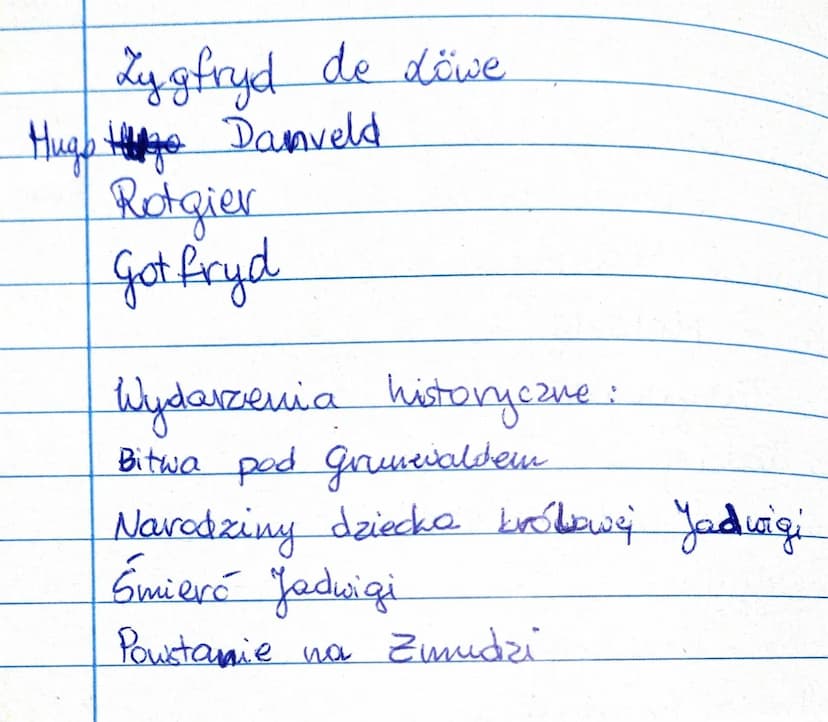 Zygfryd de Löwe
Hugo Danveld
Rotgier
Gotfryd
Wydarzenia historyczne:
Bitwa pod Grunwaldem
Narodziny dziecka królowej Jadwigi
Śmierć Jadwigi
Powstanie na Żmudzi